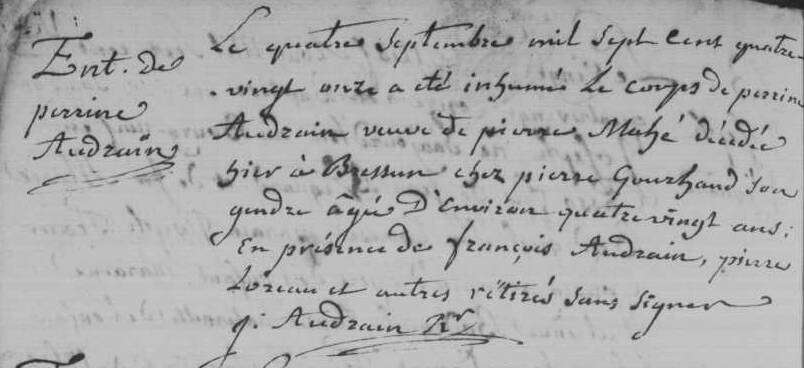 Ent. de
perrine
Audrain
Le quatre septembre mil sept cent quatre-
vingt onze a été inhumé le corps de perrine
Audrain veuve de pierre Mahé décédée
hier à Bressun chez pierre Gourhaud son
gendre âgée D'Environ quatre vingt ans:
En présence de françois Audrain, pierre
Loreau et autres rétirés sans signer
j. Audrain Rr